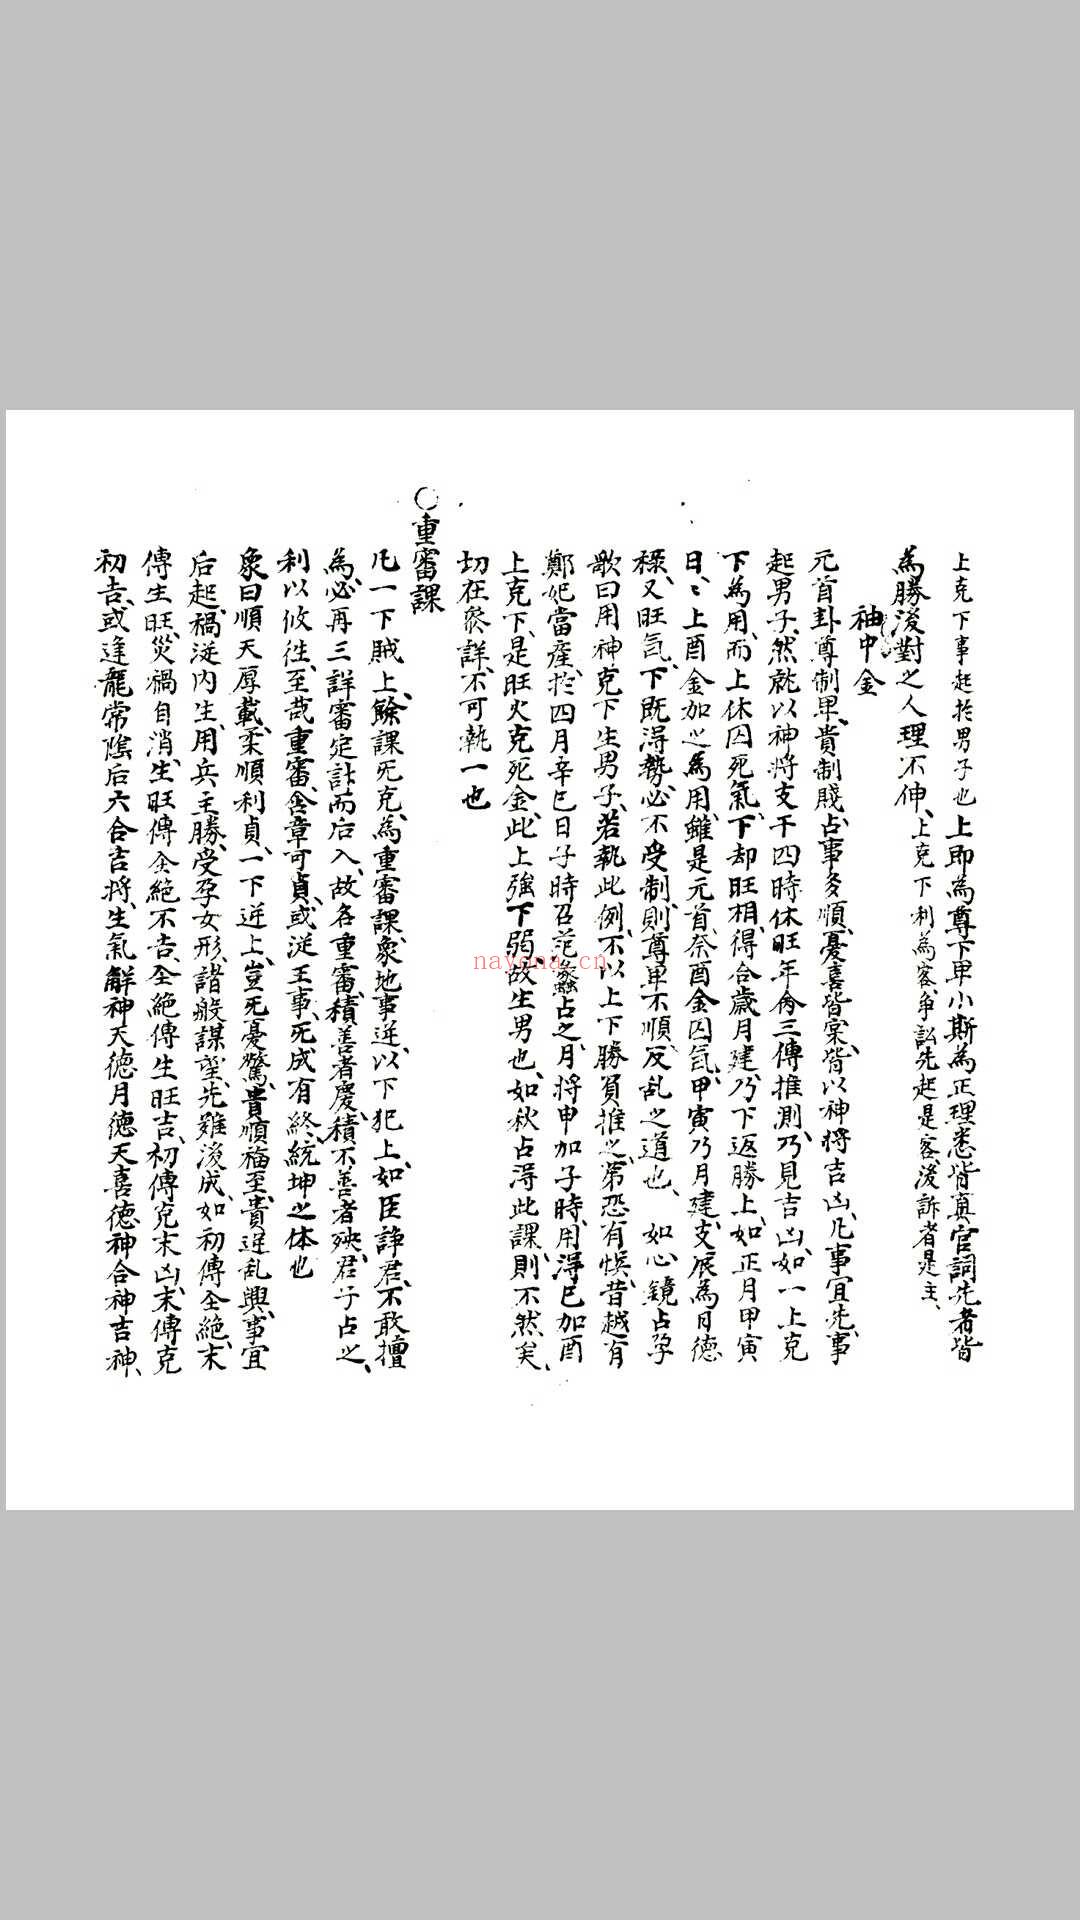 上克下事起於男子也上即為尊下卑小斯為正理悉皆真官詞先者皆
為勝後對之人理不伸、上克下利為客爭訟先起是客後訴者是主、
袖中金
元首卦尊制卑、貴制賤、占事多順、憂喜皆寔、皆以神將吉凶、凡事宜先、事
起男子、然就以神將支干四時休旺年命三傳推測、乃見吉凶、如一上克
下為用、而上休囚死氣、下却旺相、得合歲月建、乃下返勝上、如正月甲寅
日、上酉金加之為用、雖是元首、奈酉金囚氣、甲寅乃月建、支辰為月德
祿、又旺氣、下既得勢、必不受制、則尊卑不順、反乱之道也、如心鏡占孕
歌曰用神克下生男子、若執此例、不以上下勝負推之、第恐有悞、昔越有
鄭妃當產、於四月辛巳日子時召范蠡占之、月將申加子時、用得巳加酉
上克下、是旺火克死金、此上強下弱、故生男也、如秋占得此課、則不然矣、
切在叅詳、不可執一也
〇重審課
凡一下賊上、餘課死克、為重審課、象地事逆、以下犯上、如臣諍君、不敢擅
為、必再三詳審定計而后入、故名重審、積善者慶、積不善者殃、君子占之、
利以攸往、至哉重審、含章可貞、或從王事、死成有終、統坤之体也
象曰順天厚載、柔順利貞、一下逆上、豈死憂驚、貴順福至、貴逆乱興、事宜
后起、禍從內生、用兵主勝、受孕女形、諸般謀望、先難後成、如初傳全絕、末
傳生旺、災禍自消、生旺傳全絕不吉、全絕傳生旺吉、初傳克末凶、末傳克
初吉、或逢龍常陰后六合吉將、生氣解神天德月德天喜德神合神吉神、
nayona.cn